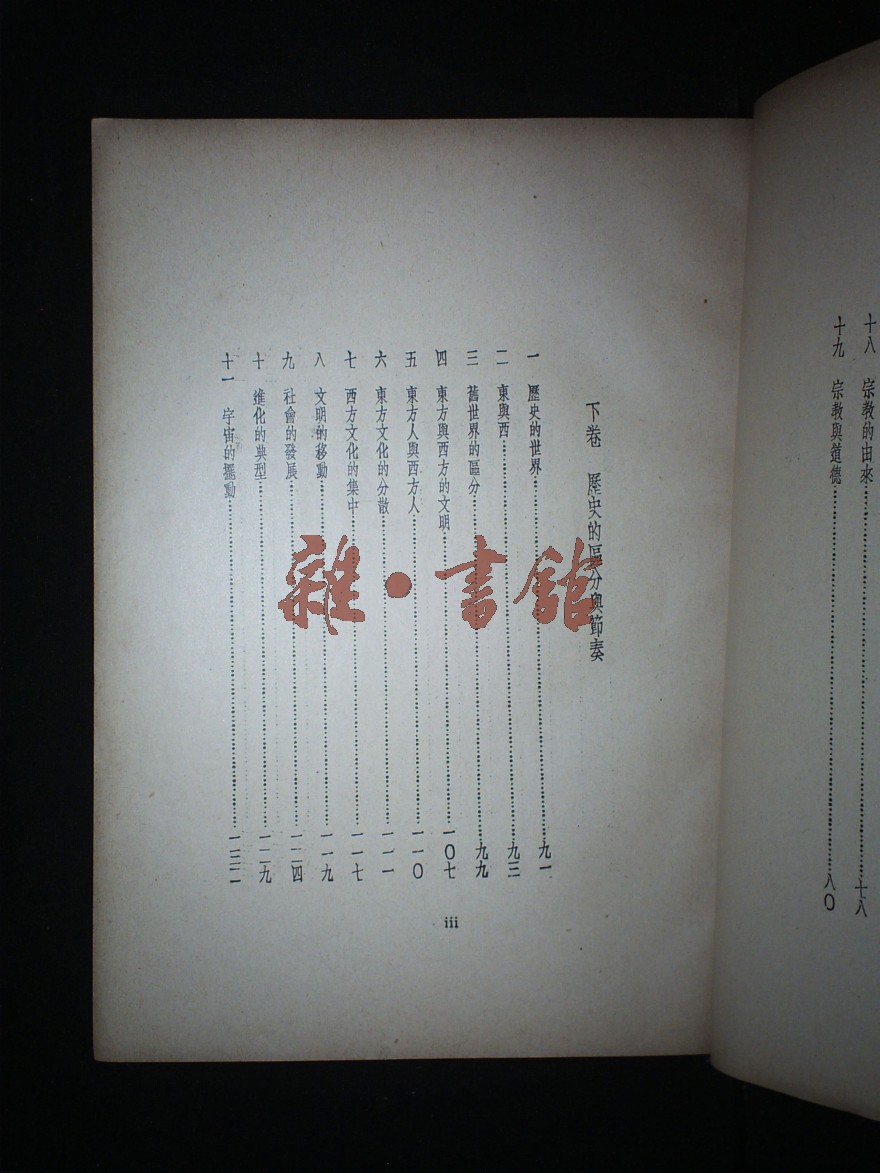 十八 宗教的由來……七八
十九 宗教與道德……八〇
下卷 歷史的區分與節奏
一 歷史的世界……九一
二 東與西……九三
三 舊世界的區分……九九
四 東方與西方的文明……一〇七
五 東方人與西方人……一一〇
六 東方文化的分散……一一一
七 西方文化的集中……一一七
八 文明的移動……一一九
九 社會的發展……一二四
十 進化的典型……一二九
十一 宇宙的擺動……一三二
iii
雜·書館